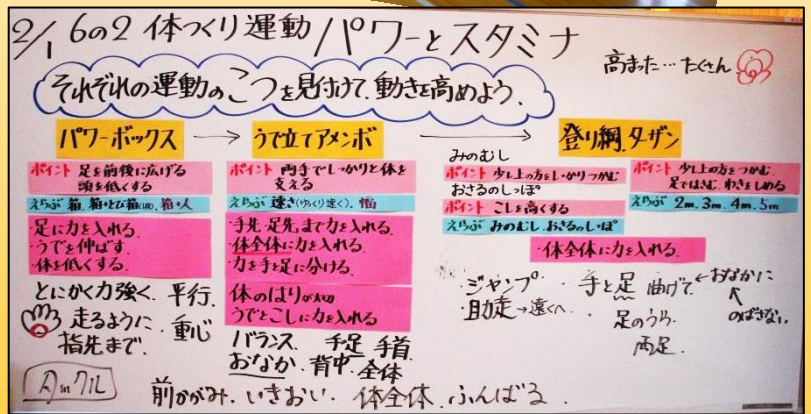 2/1 6の2 体つくり運動 パワーとスタミナ
高まった…たくさん
それぞれの運動のこつを見付けて、動きを高めよう。
パワーボックス → うで立てアメンボ → 登り綱、ターザン
ポイント 足を前後に広げる
頭を低くする
えらぶ 箱、箱+とび箱(1段)、箱+人
・足に力を入れる。
・うでを伸ばす
・体を低くする。
とにかく力強く、平行、
走るように・重心
指先まで、
ポイント 両手でしっかりと体を
支える
えらぶ 速さ(ゆっくり速く)、幅
・手先、足先まで力を入れる。
・体全体に力を入れる。
・力を手と足に分ける。
体のはりが大切
うでとこしに力を入れる
バランス 手足 手首
おなか、背中、全体
みのむし
ポイント 少し上の方をしっかりつかむ
おさるのしっぽ
ポイント こしを高くする
えらぶ みのむし、おさるのしっぽ
ポイント 少し上の方をつかむ、
足ではさむ、わきをしめる
えらぶ 2m、3m、4m、5m
・体全体に力を入れる。
・ジャンプ
・助走→遠くへ
・手と足 曲げて←おなかに
のばさない
足のうら
両足、
前かがみ、いきおい、体全体、ふんばる、